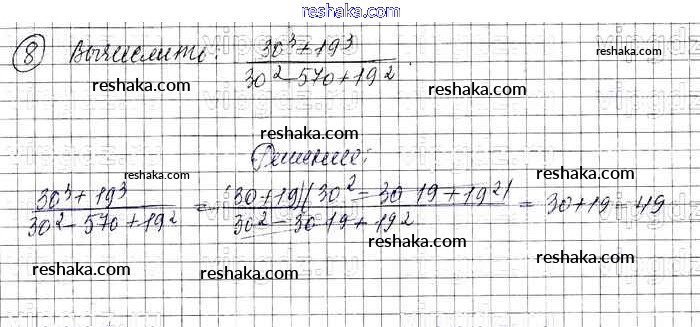 reshaka.ru
8 Вычислить: (30³+19³)/(30²-570+19²).
reshaka.com reshaka.com
reshaka.com
Решение:
reshaka.com reshaka.com
(30³+19³)/(30²-570+19²) = ((30+19)(30²-30 19+19²))/(30²-30 19+19²) = 30+19=49
reshaka.com
reshaka.com reshaka.com reshaka.com